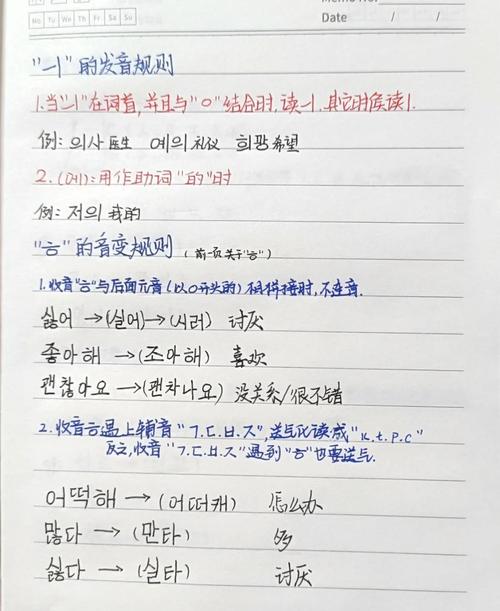 Memo No.
No Tu We Th Fr Sa Su
Date / /
"ㅢ"的发音规则
1.当"ㅢ"在词首,并且与"ㅇ"结合时,读ㅢ.其它时候读ㅣ.
例: 의사 医生 예의 礼仪 희망 希望
2.(예): 用作助词"的"时
例: 저의 我的
"ㅎ"的音变规则 (前一页关于"ㅎ")
1.收音"ㅎ"与后面元音(以ㅇ开头的)相拼接时,不连音.
싫어 →(실어)→(시러) 讨厌
좋아해 →(조아해) 喜欢
괜찮아요 →(괜차나요) 没关系/很不错
2.收音ㅎ遇上辅音"ㄱ.ㄷ.ㅂ.ㅈ",送气化读成"k.t.p.c"
反之,收音"ㄱ.ㄷ.ㅂ.ㅈ"遇到"ㅎ"也要送气.
어떡해 → (어떠캐) 怎么办
많다 → (만타) 多
싫다 → (실타) 讨厌